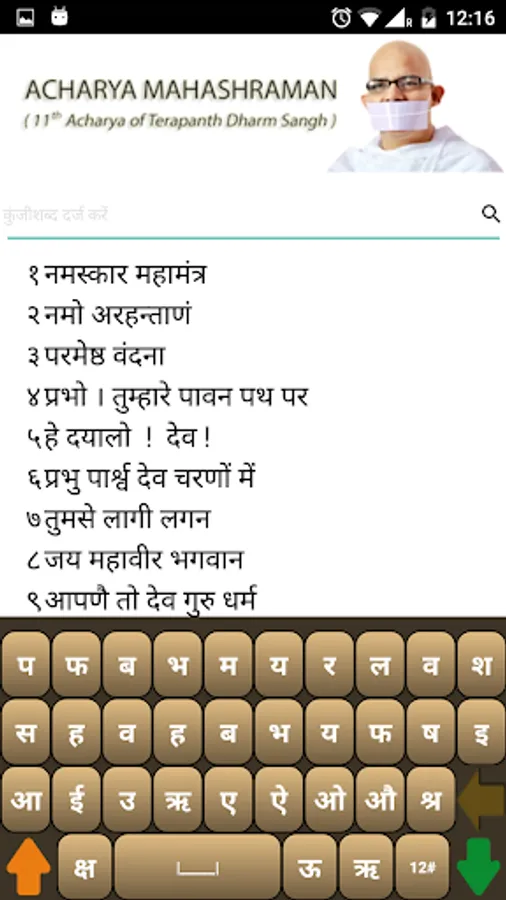 12:16
R
ACHARYA MAHASHRAMAN
( 11th Acharya of Terapanth Dharm Sangh )
कुंजीशब्द दर्ज करें
१ नमस्कार महामंत्र
२ नमो अरहन्ताणं
३ परमेष्ठ वंदना
४ प्रभो । तुम्हारे पावन पथ पर
५ हे दयालो ! देव !
६ प्रभु पार्श्व देव चरणों में
७ तुमसे लागी लगन
८ जय महावीर भगवान
९ आपणै तो देव गुरु धर्म
प फ ब भ म य र ल व श
स ह व ह ब भ य फ ष इ
आ ई उ ऋ ए ऐ ओ औ श्र
क्ष ऊ ऋ 12#